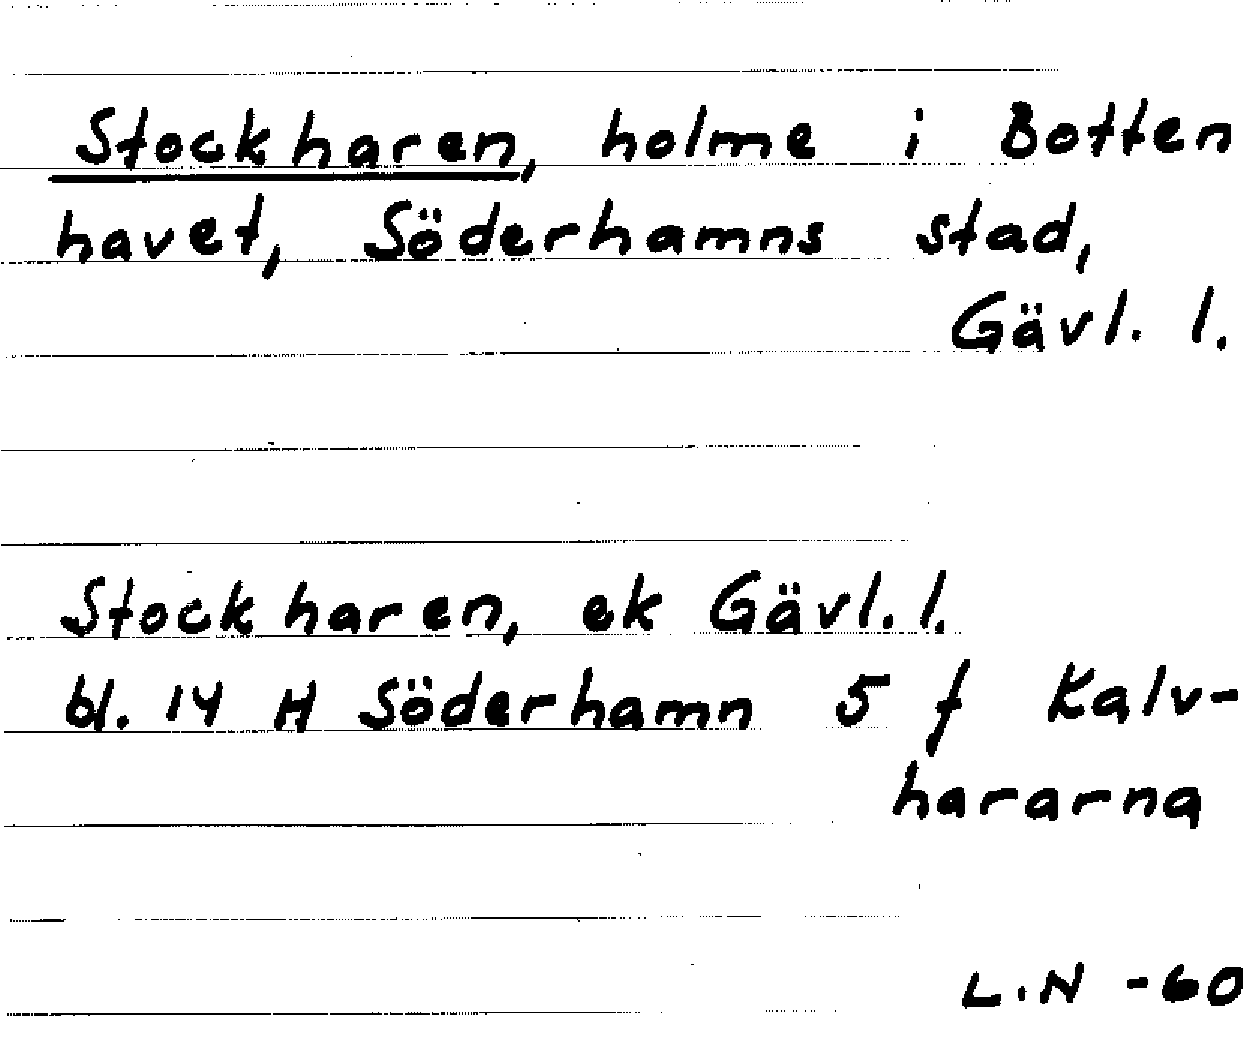 Stockharen, holme i Botten
havet, Söderhamns stad,
Gävl. l.
Stockharen, ek Gävl. l.
bl. 14 H Söderhamn 5 f Kalv-
hararna
L.N -60